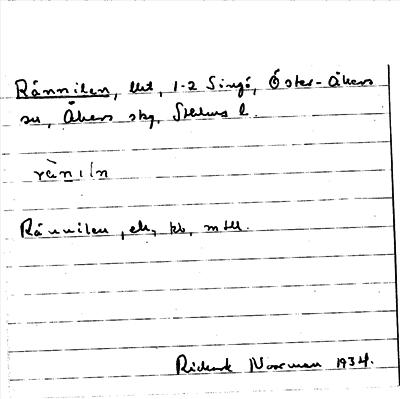 Rånnilen, lht, 1-2 Singö, Öster-Åkers
sn, Åkers skg, Sthlms l.
rån ı l n
Rånnilen, ek, kb, mtbl.
Rickard Norrman 1934.